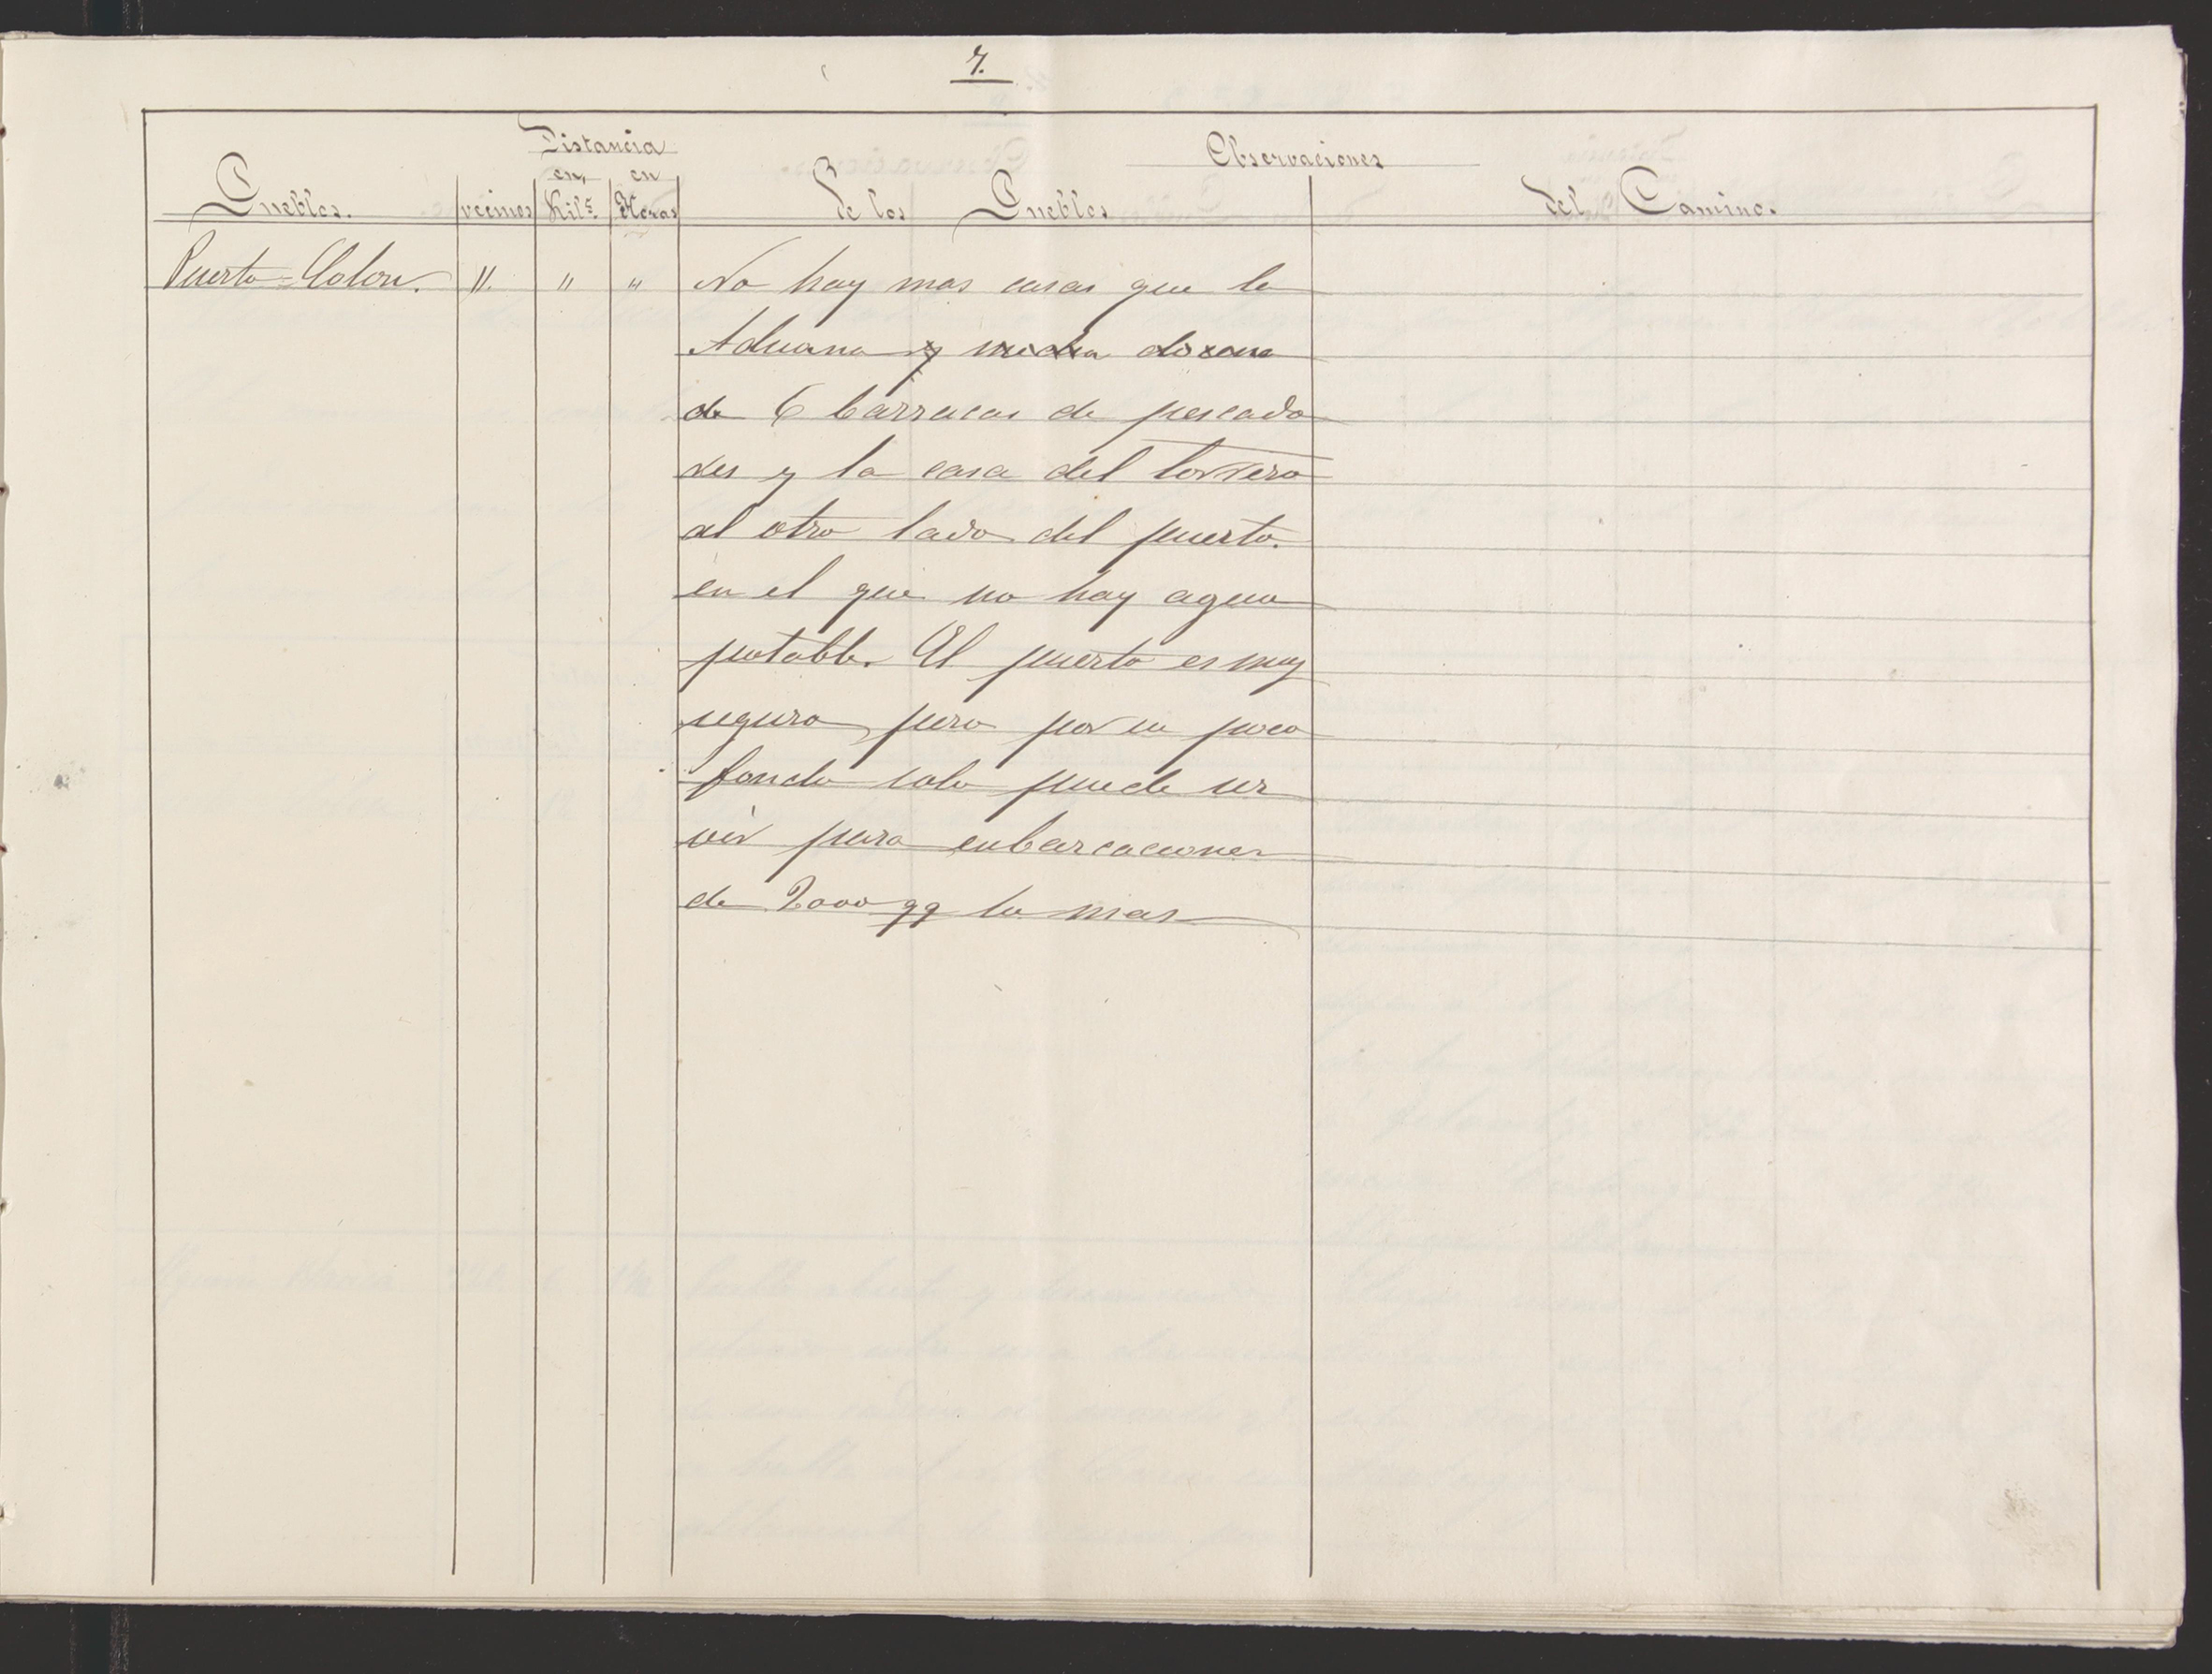 7.
Distancia
Observaciones
en, en
Pueblos. vecinos Kils. Horas De los Pueblos del Camino.
Puerto=Colon. " " " No hay mas casas que la
Aduana y media dozena
de 6 barracas de pescado
res y la casa del torrero
al otro lado del puerto.
en el que no hay agua
potable. El puerto es muy
seguro, pero por su poco
fondo solo puede ser
vir para enbarcaciones
de 2000 qq lo mas